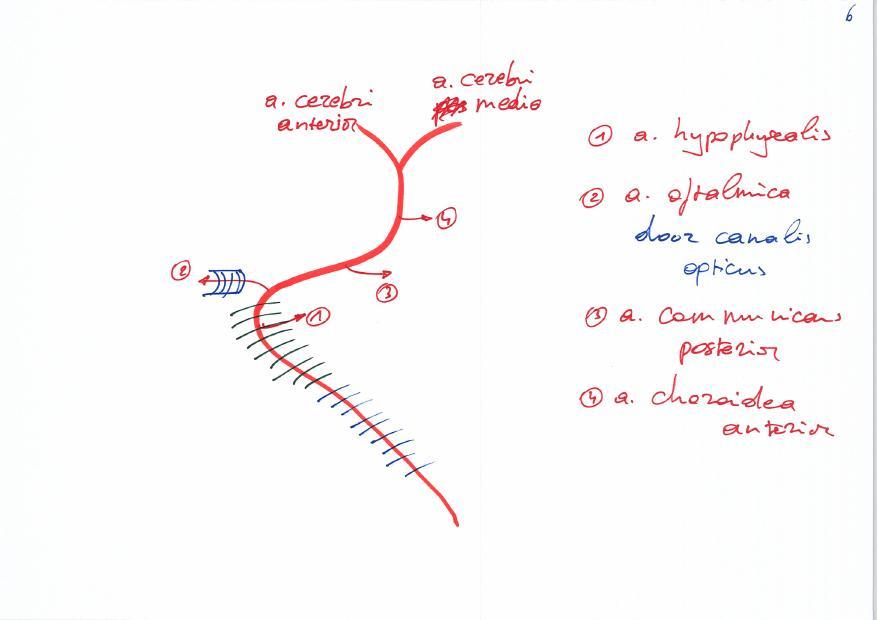 6
a. cerebri
anterior
a. cerebri
media
4
2
3
1
① a. hypophysealis
② a. oftalmica
door canalis
opticus
③ a. communicans
posterior
④ a. choroidea
anterior